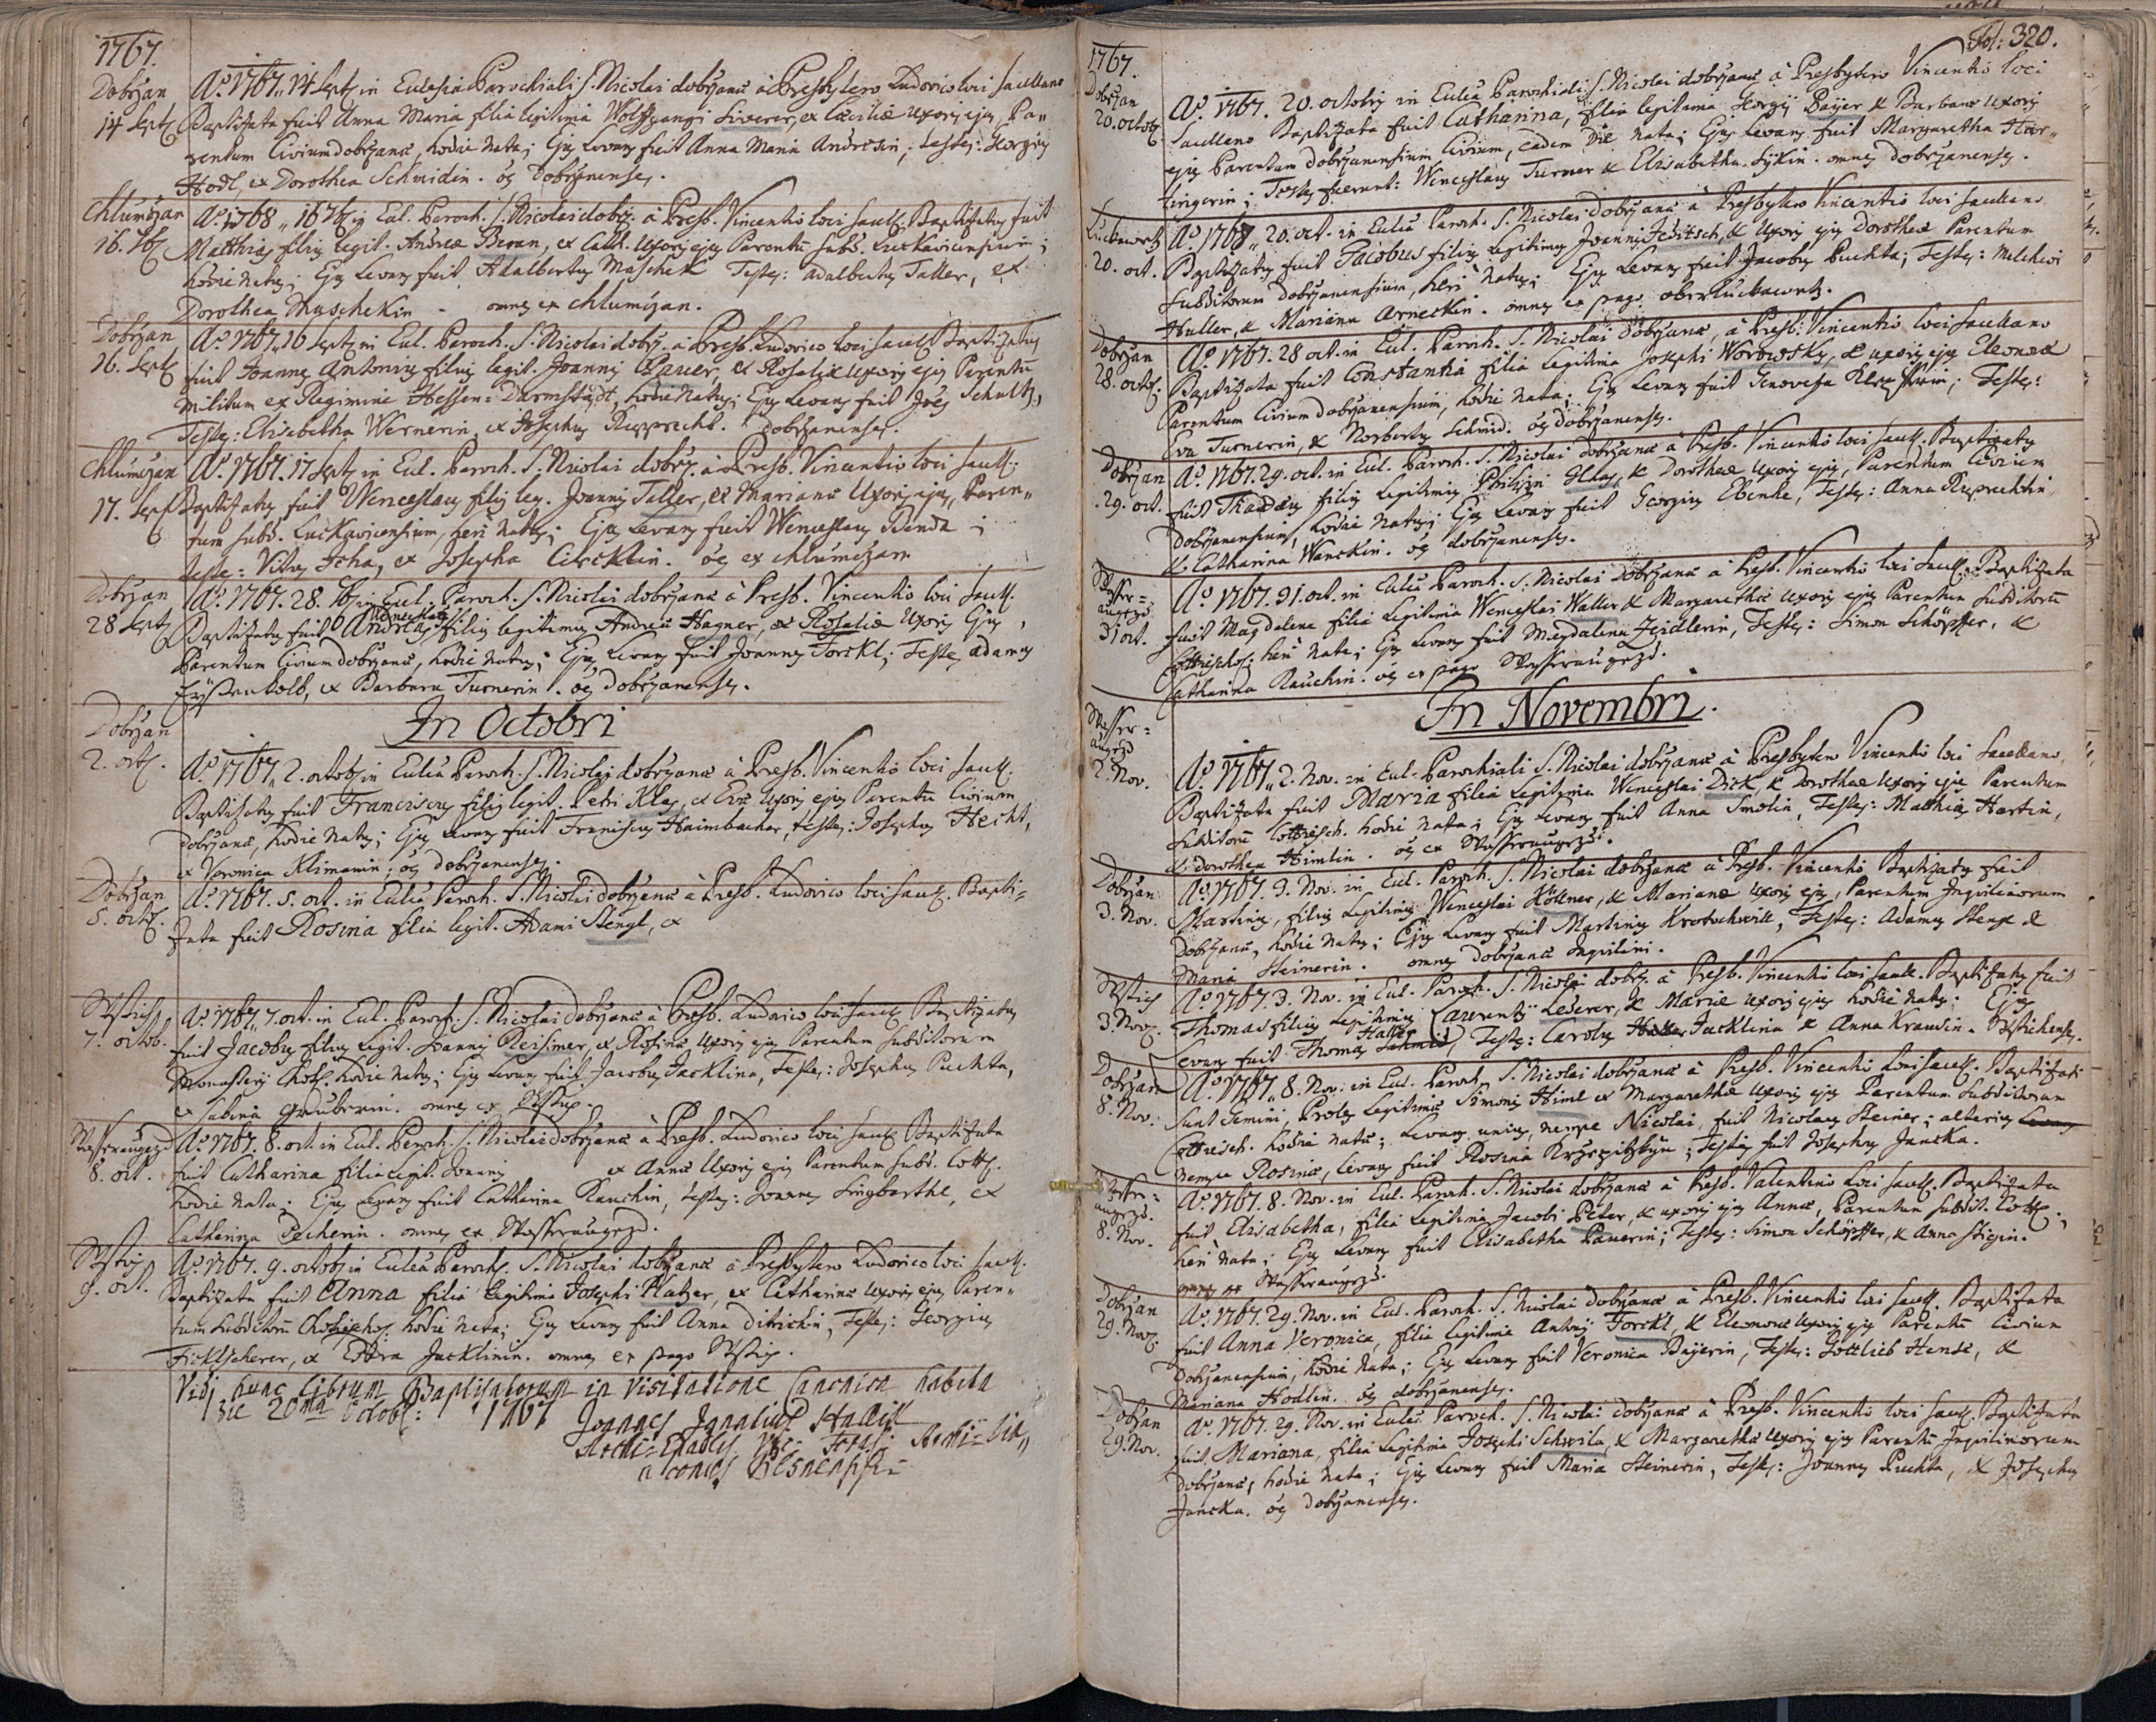 1767.
Dobrzan
14 Septb
Aº. 1767. 14 Septb in Ecclesia Parochiali S. Nicolai dobrzanæ à Presbytero Ludovico loci Sacellano
Baptizata fuit Anna Maria filia legitima Wolffgangi, et Cæciliæ Uxoris ejus, Pa-
rentum Civium dobrzanæ, hodie nata; Ejus Levans fuit Anna Maria Andresin, testes: Georgius
Hodl, et Dorothea Schmidin. oēs Dobrzanenses.
Chlumczan
16. 7b
Aº. 1768 16 7b in Eccl. Paroch. S. Nicolai dobrz. à Presb. Vincentio loci Sacell. Baptizatus fuit
Matthias filius legit. Andreæ Beran, et Cath. Uxoris ejus Parentū subd. Luckavicensium;
hodie natus; Ejus Levans fuit Adalbertus Maschek Testes: Adalbertus Taller, et
Dorothea Muschekin - omnes ex Chlumczan.
Dobrzan
16. Septb
Aº. 1767. 16 Septb in Eccl. Paroch. S. Nicolai dobrz. à Presb. Ludovico loci Sacell. Baptizatus
fuit Joannes Antonius filius legit. Joannis Bauer, et Rosaliæ Uxoris ejus Parentū
militum ex Regimine Hessen-Darmstadt, hodie natus; Ejus Levans fuit Joēs Schultz,
Testes: Elisabetha Wernerin, et Josephus Rupprecht. dobrzanenses.
Chlumczan
17. Sept
Aº. 1767. 17 Septb in Eccl. Paroch. S. Nicolai dobrz. à Presb. Vincentio loci Sacell.
Baptizatus fuit Wenceslaus filius leg. Joannis Taller, et Marianæ Uxoris ejus, Paren-
tum subd. Luckavicensium, heri natus; Ejus Levans fuit Wenceslaus Benda;
testes: Vitus Icha, et Josepha Circklin. oēs ex Chlumczan
Dobrzan
28 Septb
Aº. 1767. 28. 7b in Eccl. Paroch. S. Nicolai dobrzanæ à Presb. Vincentio loci Sacell.
Wenceslaus
Baptizatus fuit Andreas, filius legitimus Andreæ Hagner, et Rosaliæ Uxoris Ejus,
Parentum Civium dobrzanæ, hodie natus; Ejus Levans fuit Joannes Forckl; Testes Adamus
Eyssenkolb, et Barbara Turnerin. oēs dobrzanenses.
In Octobri
Dobrzan
2. octb.
Aº. 1767. 2. octob in Eccliā Paroch. S. Nicolai dobrzanæ à Presb. Vincentio loci Sacell.
Baptizatus fuit Franciscus filius legit. Petri Klas, et Evæ Uxoris ejus Parentū Civium
dobrzanæ, hodie natus; Ejus Levans fuit Franciscus Haimbacher, testes: Josephus Hecht,
et Veronica Klimanin; oēs dobrzanenses.
Dobrzan
5. octob.
Aº. 1767. 5. oct. in Eccliā Paroch. S. Nicolai dobrzanæ à Presb. Ludovico loci Sacell. Bapti-
zata fuit Rosina filia legit. Adami Stengl, et
7. octob.
Aº. 1767. 7. oct. in Eccl. Paroch. S. Nicolai dobrzanæ à Presb. Ludovico loci Sacell. Baptizatus
fuit Jacobus filius legit. Joannis Reisimer, et Rosinæ Uxoris ejus Parentum subditorum
Monasterij Chot. hodie natus; Ejus Levans fuit Jacobus Jacklina, Testes: Josephus Puchta,
et Sabina Gruberin. omnes ex
Wasseraugezd
8. oct.
Aº. 1767. 8. oct. in Eccl. Paroch. S. Nicolai dobrzanæ à Presb. Ludovico loci Sacell. Baptizata
fuit Catharina filia legit. Joannis et Annæ Uxoris ejus Parentum subd. Cott.
hodie nata; Ejus Levans fuit Catharina Rauchin, testes: Joannes Lingbarthl, et
Catharina Pecherin. omnes ex Wasseraugezd.
9. oct.
Aº. 1767. 9. octob in Eccliā Paroch. S. Nicolai dobrzanæ à Presbytero Ludovico loci Sacell.
Baptizata fuit Anna filia legitima Josephi Platzer, et Catharinæ Uxoris ejus Paren-
tum subditorū hodie nata; Ejus Levans fuit Anna Ditrichin, Testes: Georgius
Ficklscherer, et Jacklinin. omnes ex pago
Vidi hunc librum Baptisatorum in Visitatione Canonica habita
die 20ma Octob: 1767
Joannes Ignatius
Fol: 320.
1767.
Dobrzan
20. octob
Aº. 1767. 20. octobris in Eccliā Parochiali S. Nicolai dobrzanæ à Presbytero Vincentio loci
Sacellano Baptizata fuit Catharina, filia legitima Georgij Bayer & Barbaræ Uxoris
ejus Parentum dobrzanensium Civium, eadem die nata; Ejus Levans fuit Margaretha Har-
tingerin; Testes fuerunt: Wenceslaus Turner & Elisabetha. omnes dobrzanenses.
Luckawetz
20. oct.
Aº. 1767. 20. oct. in Eccliā Paroch. S. Nicolai dobrzanæ à Presbytero Vincentio loci Sacellano
Baptizatus fuit Jacobus filius legitimus Joannis, & Uxoris ejus Dorotheæ Parentum
subditorum dobrzanensium, heri natus; Ejus Levans fuit Jacobus Puchta; Testes: Melchior
Huller, & Mariana Arneckin. omnes ex pago oberluckawetz.
Dobrzan
28. octob.
Aº. 1767. 28 oct. in Eccl. Paroch. S. Nicolai dobrzanæ, à Presb: Vincentio loci Sacellano
Baptizata fuit Constantia filia legitima Josephi Worowsky, & uxoris ejus Eleonoræ
Parentum Civium dobrzanensium, hodie nata; Ejus Levans fuit Genovefa; Testes:
Eva Turnerin, & Norbertus Schmid. oēs dobrzanenses.
Dobrzan
29. oct.
Aº. 1767. 29. oct. in Eccl. Paroch. S. Nicolai dobrzanæ à Presb. Vincentio loci Sacell. Baptizatus
fuit Thadæus filius legitimus Philippi Glas, & Dorotheæ Uxoris ejus, Parentum Civium
dobrzanensium, hodie natus; Ejus Levans fuit Georgius Ebenhe, Testes: Anna Ruprechtin
& Catharina Wanckin. oēs dobrzanenses.
Wasser=
augezd
31 oct.
Aº. 1767. 31. oct. in Eccliā Paroch. S. Nicolai dobrzanæ à Presb. Vincentio loci Sacell. Baptizata
fuit Magdalena filia legitima Wenceslai Walter & Margarethæ uxoris ejus Parentum subditorū
heri nata; Ejus Levans fuit Magdalena Zeidlerin, Testes: Simon Schöpffer, &
Catharina Rauchin. oēs ex pago Wasseraugezd.
In Novembri.
Wasser=
augezd
2. Nov.
Aº. 1767. 2. Nov. in Eccl. Parochiali S. Nicolai dobrzanæ à Presbytero Vincentio loci Sacellano
Baptizata fuit Maria filia legitima Wenceslai Dick, & Dorotheæ Uxoris ejus Parentum
subditorū Cottiesch. hodie nata; Ejus Levans fuit Anna Smolin, Testes: Mathias Hartin,
& dorothea Himlin. oēs ex Wasseraugezd.
Dobrzan
3. Nov.
Aº. 1767. 3. Nov. in Eccl. Paroch. S. Nicolai dobrzanæ à Presb. Vincentio Baptizatus fuit
Martinus, filius legitimus Wenceslai Köllner, & Marianæ uxoris ejus, Parentum Inquilinorum
dobrzanæ, hodie natus; Ejus Levans fuit Martinus Krotschwill, Testes: Adamus Stenge &
Maria Steinerin. omnes dobrzanæ Inquilini.
3. Nov.
Aº. 1767. 3. Nov. in Eccl. Paroch. S. Nicolai dobrz. à Presb. Vincentio loci Sacell. Baptizatus fuit
Thomas filius legitimus Laurentij Lederer, & Mariæ uxoris ejus hodie natus: Ejus
Haller
Levans fuit Thomas Schmid, Testes: Carolus Jacklina & Anna Krausin.
Dobrzan
8. Nov.
Aº. 1767. 8. Nov. in Eccl. Paroch. S. Nicolai dobrzanæ à Presb. Vincentio loci Sacell. Baptizati
sunt Gemini, Proles legitimæ Simonis Himl et Margarethæ uxoris ejus Parentum subditorum
Cottiesch. hodie natæ; Levans unius, nempe Nicolai, fuit Nicolaus Steiner; alterius Levans
nempe Rosinæ, Levans fuit Rosina; Testis fuit Josephus Jancka.
Wasser=
augezd.
8. Nov.
Aº. 1767. 8. Nov. in Eccl. Paroch. S. Nicolai dobrzanæ à Presb. Valentino loci Sacell. Baptizata
fuit Elisabetha, filia legitima Jacobi Peter, & uxoris ejus Annæ, Parentum subdit. Cott.,
heri nata; Ejus Levans fuit Elisabetha Pauerin; Testes: Simon Schöpffer, & Anna Stigin.
omnes ex Wasseraugezd.
Dobrzan
29. Nov.
Aº. 1767. 29. Nov. in Eccl. Paroch. S. Nicolai dobrzanæ à Presb. Vincentio loci Sacell. Baptizata
fuit Anna Veronica, filia legitima Antonij Forckl, & Eleonoræ uxoris ejus Parentū Civium
dobrzanensium, hodie nata; Ejus Levans fuit Veronica Bayerin, Testes: Gottlieb Hense, &
Mariana Hodlin. oēs dobrzanenses.
Dobrzan
29. Nov.
Aº. 1767. 29. Nov. in Eccliā Paroch. S. Nicolai dobrzanæ à Presb. Vincentio loci Sacell. Baptizata
fuit Mariana, filia legitima Josephi Schwila, & Margarethæ uxoris ejus Parentū Inquilinorum
dobrzanæ, hodie nata; Ejus Levans fuit Maria Steinerin, Testes: Joannes Puchta, & Josephus
Jancka. oēs dobrzanenses.